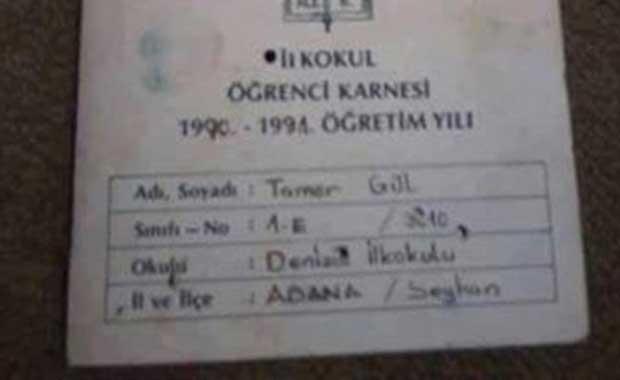 İLKOKUL
ÖĞRENCİ KARNESİ
1990 - 1991 ÖĞRETİM YILI
Adı, Soyadı : Tamer Gül
Sınıfı – No : 1-E /
Okulu : İlkokulu
İl ve İlçe : ADANA / Seyhan